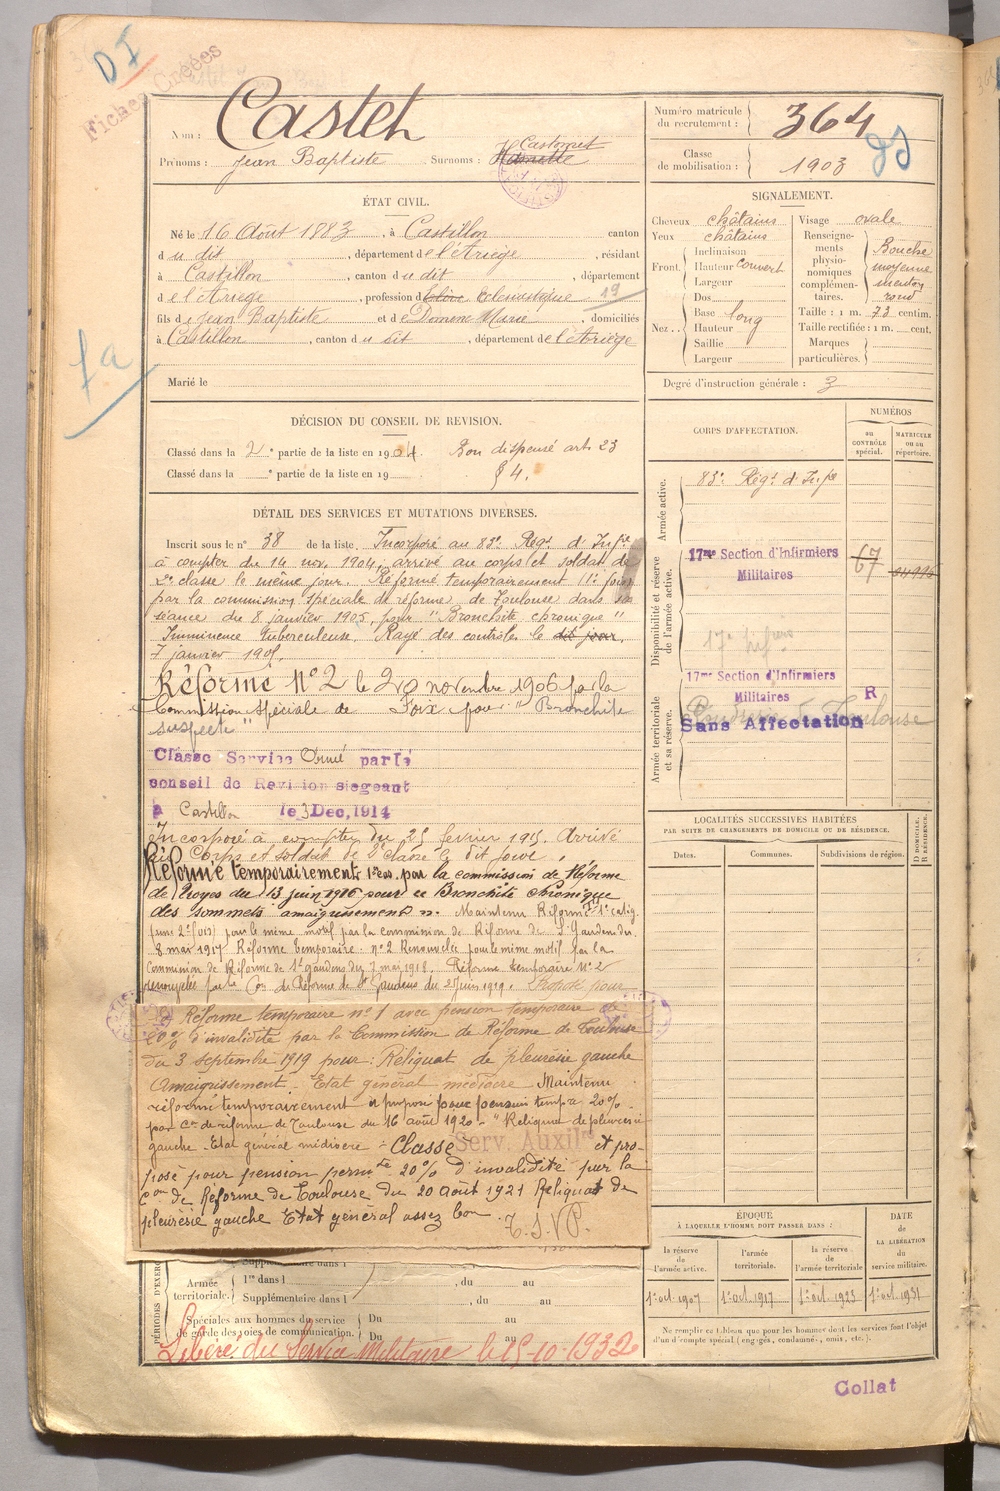 DI
Fiches Créées
Nom : Castet
Prénoms : Jean Baptiste Surnoms : Castornet
Numéro matricule du recrutement : 364
Classe de mobilisation : 1903
ÉTAT CIVIL.
Né le 16 Août 1883, à Castillon canton
du dit, département de l'Ariège, résidant
à Castillon, canton du dit, département
de l'Ariège, profession d'Elève Eclesiastique 19
fils de Jean Baptiste et de Domenc Marie, domiciliés
à Castillon, canton du dit, département de l'Ariège
Marié le
SIGNALEMENT.
Cheveux châtains
Yeux châtains
Front. Inclinaison
Hauteur couvert
Largeur
Nez. Dos
Base long
Hauteur
Saillie
Largeur
Visage ovale
Renseignements physionomiques complémentaires. Bouche moyenne menton rond
Taille : 1 m. 73 centim.
Taille rectifiée : 1 m. cent.
Marques particulières.
Degré d'instruction générale : 3
fa
DÉCISION DU CONSEIL DE REVISION.
Classé dans la 2e partie de la liste en 1904. Bon dispensé art. 23
Classé dans la e partie de la liste en 19 § 4.
DÉTAIL DES SERVICES ET MUTATIONS DIVERSES.
Inscrit sous le n° 38 de la liste, Incorporé au 83e Régt d'Infie
à compter du 14 nov. 1904, arrivé au corps et soldat de
2e classe le même jour. Réformé temporairement (1e fois)
par la commission spéciale de réforme de Toulouse dans sa
séance du 8 janvier 1905, pour "Bronchite chronique"
Imminence tuberculeuse. Rayé des contrôles le dit jour.
7 janvier 1905.
Réformé N° 2 le 20 novembre 1906 par la
Commission Spéciale de Foix pour "Bronchite
suspecte"
Classé Service Armé par le
conseil de Revision siegeant
à Castillon le 3 Dec, 1914
Incorporé à compter du 25 fevrier 1915. Arrivé
au Corps et soldat de 2e classe le dit jour.
Réformé temporairement par la commission de Réforme
de Troyes du 13 juin 1916 pour Bronchite chronique
des sommets amaigrissement. Maintenu Réformé 1e catég.
pour le même motif par la commission de Réforme de St Gaudens du
8 mai 1917 Réforme temporaire n° 2 Renouvelée pour le même motif par la
Commission de Réforme de St gaudens du 7 mai 1918. Réforme temporaire N° 2
renouvelée par la Con de Réforme de St Gaudens du 2 juin 1919. Proposé pour
Réforme temporaire n° 1 avec pension temporaire
20% d'invalidité par la Commission de Réforme de Toulouse
du 3 septembre 1919 pour : Reliquat de pleurésie gauche
Amaigrissement. Etat général médiocre Maintenu
réformé temporairement et proposé pour pension tempre 20%
par Con de réforme de Toulouse du 16 août 1920 - "Reliquat de pleurésie
gauche - Etat général médiocre - Classé Serv. Auxil. et pro-
posé pour pension permte 20% d'invalidité par la
Con de Réforme de Toulouse du 20 Août 1921 Reliquat de
pleurésie gauche Etat général assez bon
T.S.V.P.
CORPS D'AFFECTATION.
NUMÉROS
au CONTRÔLE spécial.
MATRICULE ou au répertoire.
Armée active.
83e Régt d'Infie
Disponibilité et réserve de l'armée active.
17me Section d'Infirmiers Militaires 67
Armée territoriale et sa réserve.
17me Section d'Infirmiers Militaires R
Sans Affectation
LOCALITÉS SUCCESSIVES HABITÉES
PAR SUITE DE CHANGEMENTS DE DOMICILE OU DE RÉSIDENCE.
Dates.
Communes.
Subdivisions de région.
D DOMICILE. R RÉSIDENCE.
ÉPOQUE
À LAQUELLE L'HOMME DOIT PASSER DANS :
DATE de LA LIBÉRATION du service militaire.
la réserve de l'armée active.
l'armée territoriale.
la réserve de l'armée territoriale
1er oct. 1907
1er oct. 1917
1er oct. 1923
1er oct. 1931
Ne remplir ce tableau que pour les hommes dont les services font l'objet
d'un décompte spécial (engagés, condamnés, omis, etc.).
PÉRIODES D'EXER
Supplémentaire dans l
Armée territoriale. 1re dans l , du au
Supplémentaire dans l , du au
Spéciales aux hommes du service de garde des voies de communication. Du au
Du au
Libéré du Service Militaire le 15-10-1932
Collat